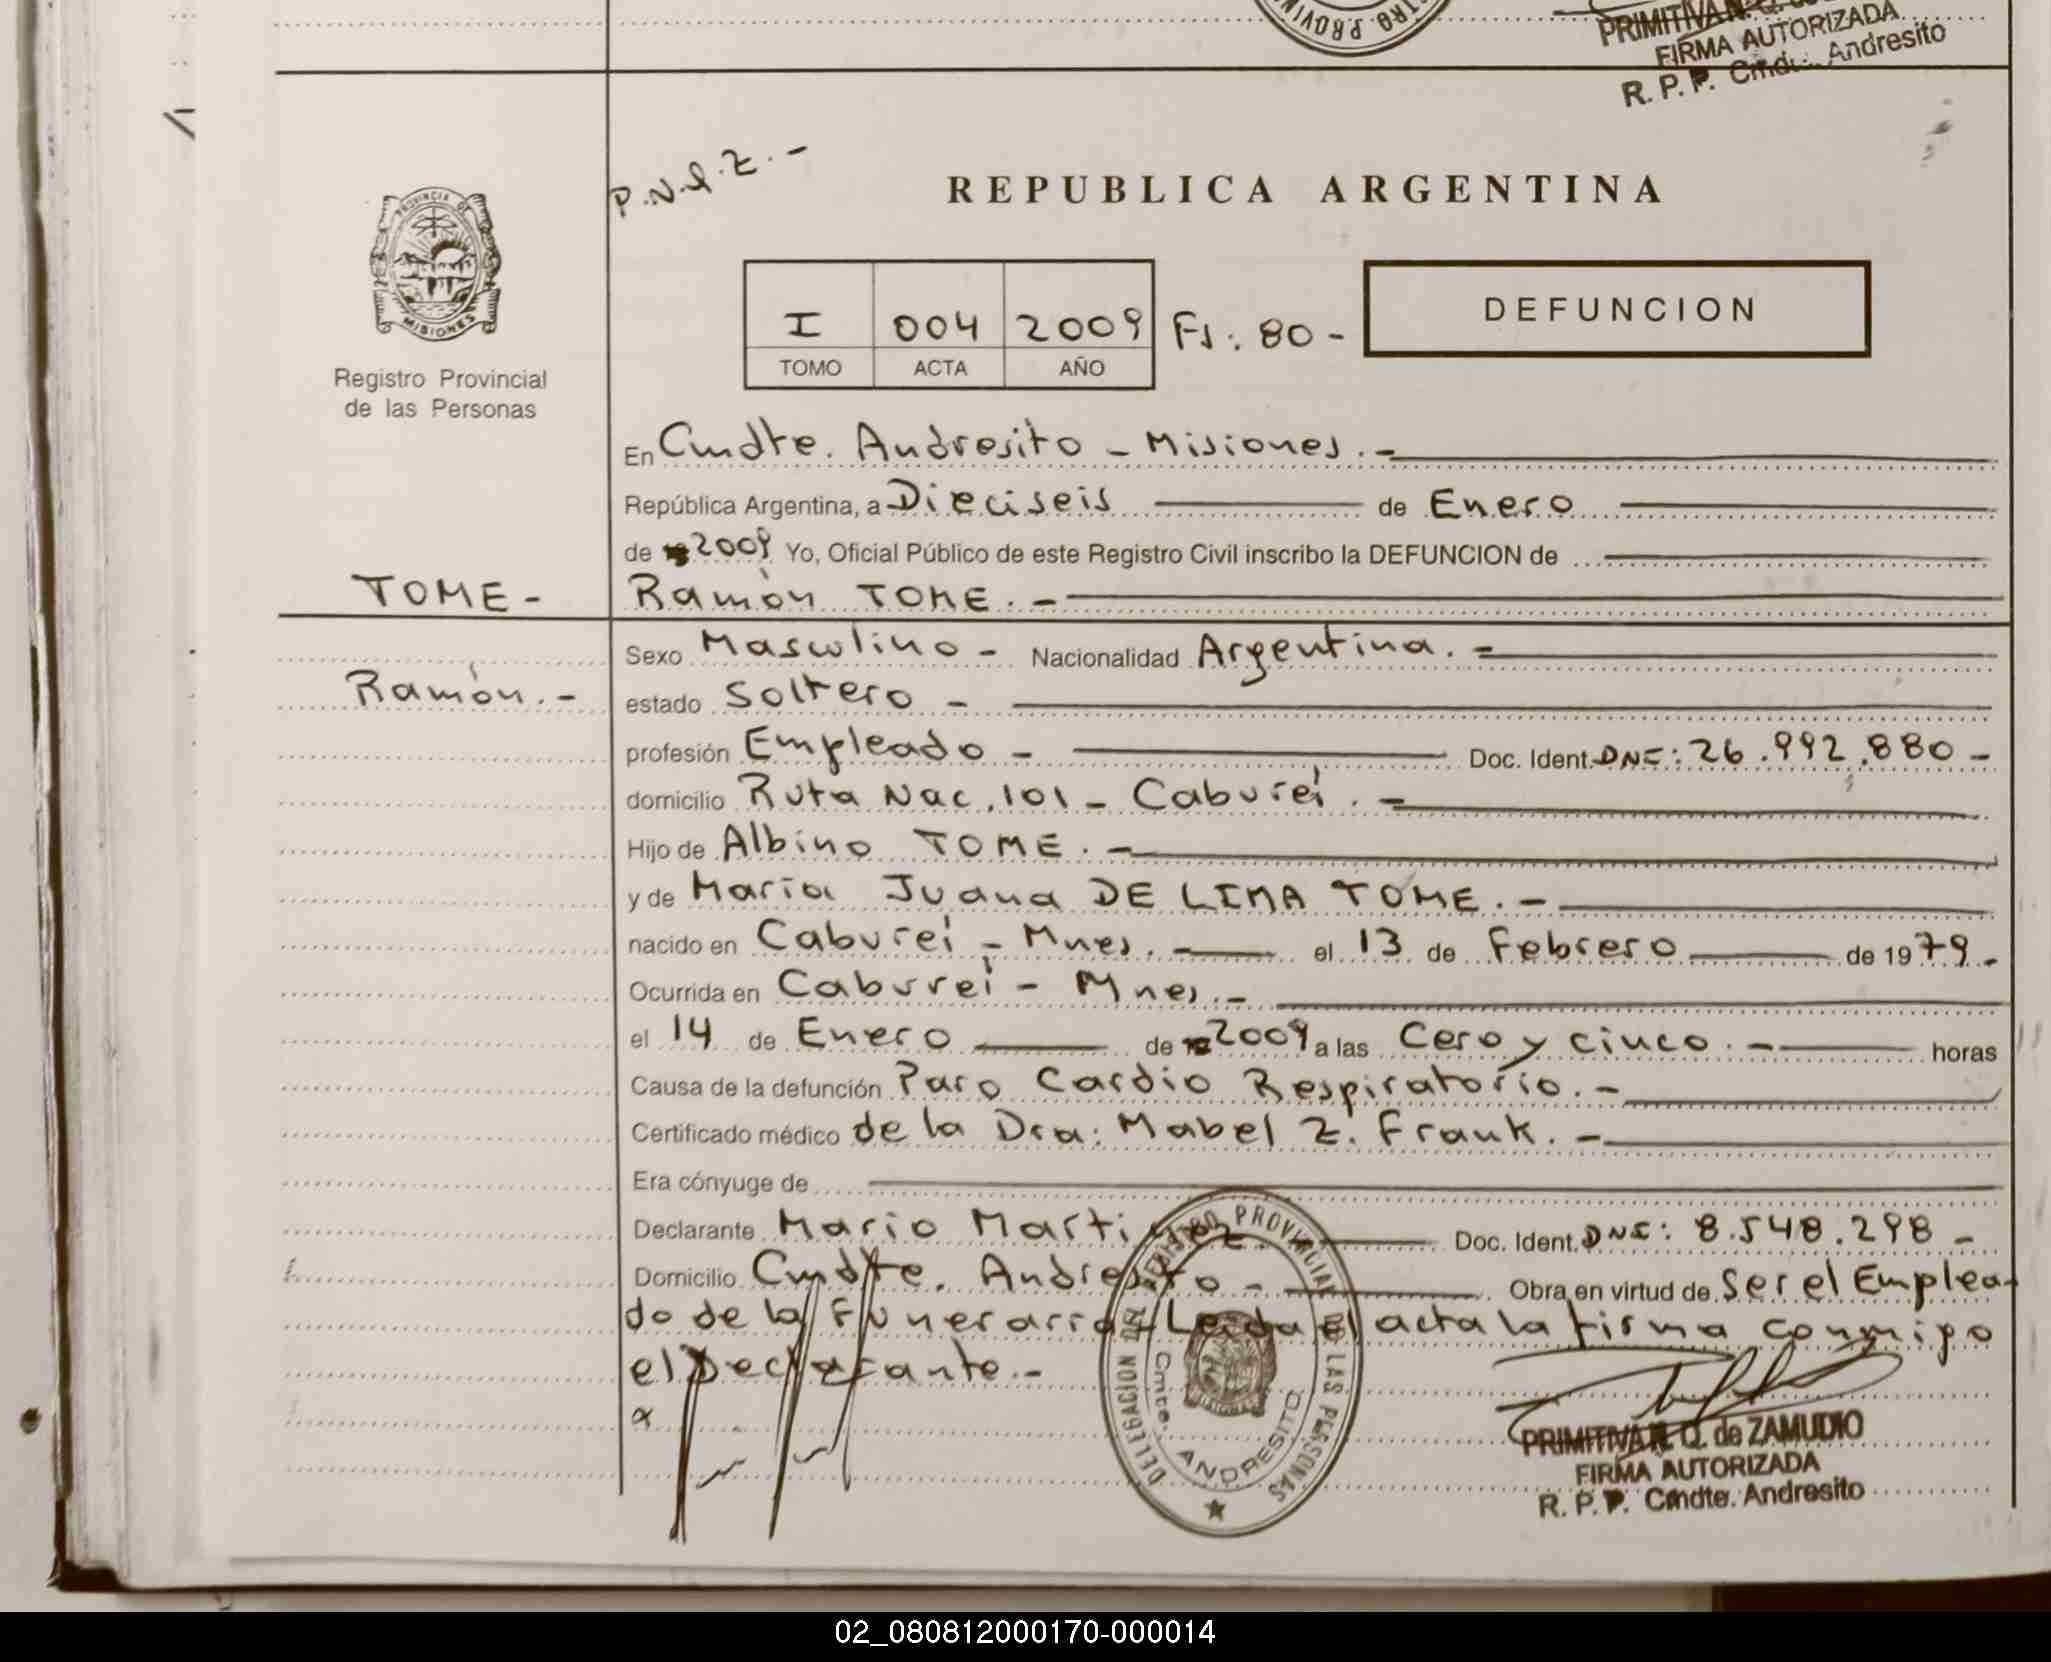 PRIMITIVA N. Q.
FIRMA AUTORIZADA
R. P. P. Cmdte. Andresito
P.N.Q.Z. -
REPUBLICA ARGENTINA
PROVINCIA DE
MISIONES
Registro Provincial
de las Personas
I 004 2009 Fs: 80 -
TOMO ACTA AÑO
DEFUNCION
En Cmdte. Andresito - Misiones. -
República Argentina, a Dieciseis de Enero
de 2009 Yo, Oficial Público de este Registro Civil inscribo la DEFUNCION de
TOME - Ramón TOME. -
Sexo Masculino - Nacionalidad Argentina. -
Ramón. - estado Soltero -
profesión Empleado - Doc. Ident. DNI: 26.992.880 -
domicilio Ruta Nac. 101 - Cabureí. -
Hijo de Albino TOME. -
y de María Juana DE LIMA TOME. -
nacido en Cabureí - Mnes. - el 13 de Febrero de 1979. -
Ocurrida en Cabureí - Mnes. -
el 14 de Enero de 2009 a las Cero y cinco. - horas
Causa de la defunción Paro Cardio Respiratorio. -
Certificado médico de la Dra: Mabel Z. Frank. -
Era cónyuge de
Declarante Mario Martinez. - Doc. Ident. DNI: 8.548.298 -
Domicilio Cmdte. Andresito - Obra en virtud de Ser el Emplea-
do de la Funeraria - Leida el acta la firma conmigo
el Declarante. -
x
DELEGACION DEL REGISTRO PROVINCIAL DE LAS PERSONAS
Cmte. ANDRESITO
PRIMITIVA N. Q. de ZAMUDIO
FIRMA AUTORIZADA
R. P. P. Cmdte. Andresito
02_080812000170-000014